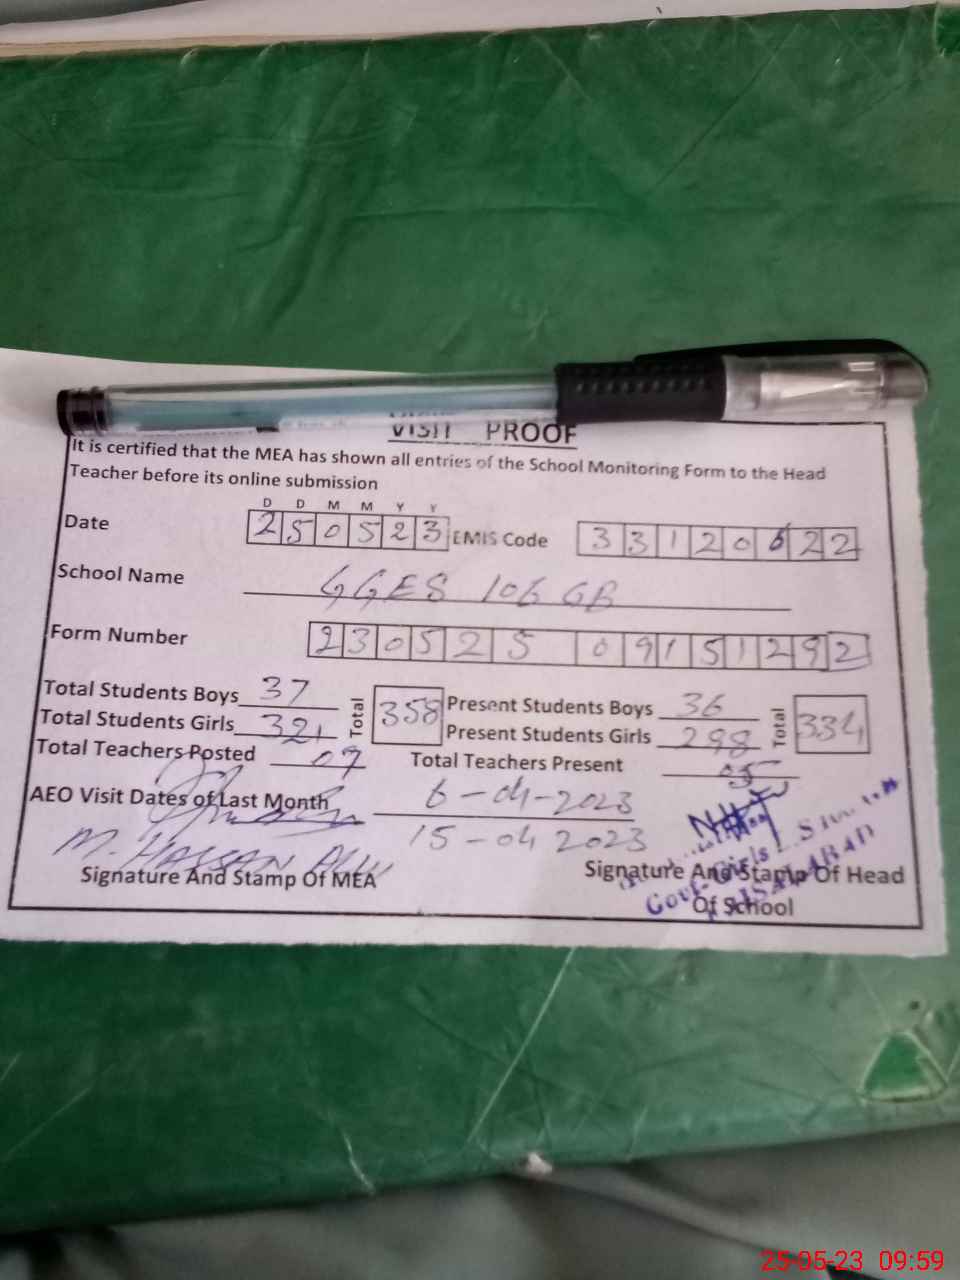 VISIT PROOF
It is certified that the MEA has shown all entries of the School Monitoring Form to the Head
Teacher before its online submission
D D M M Y Y
Date 250523 EMIS Code 33120622
School Name GGES 106 GB
Form Number 230525 09151292
Total Students Boys 37 Total 358 Present Students Boys 36 Total 334
Total Students Girls 321 Present Students Girls 298
Total Teachers Posted 09 Total Teachers Present 05
AEO Visit Dates of Last Month 6-04-2023
15-04 2023
M. HASSAN
Signature And Stamp Of MEA Signature And Stamp Of Head
Of School
Govt. Girls
FAISALABAD
25-05-23 09:59